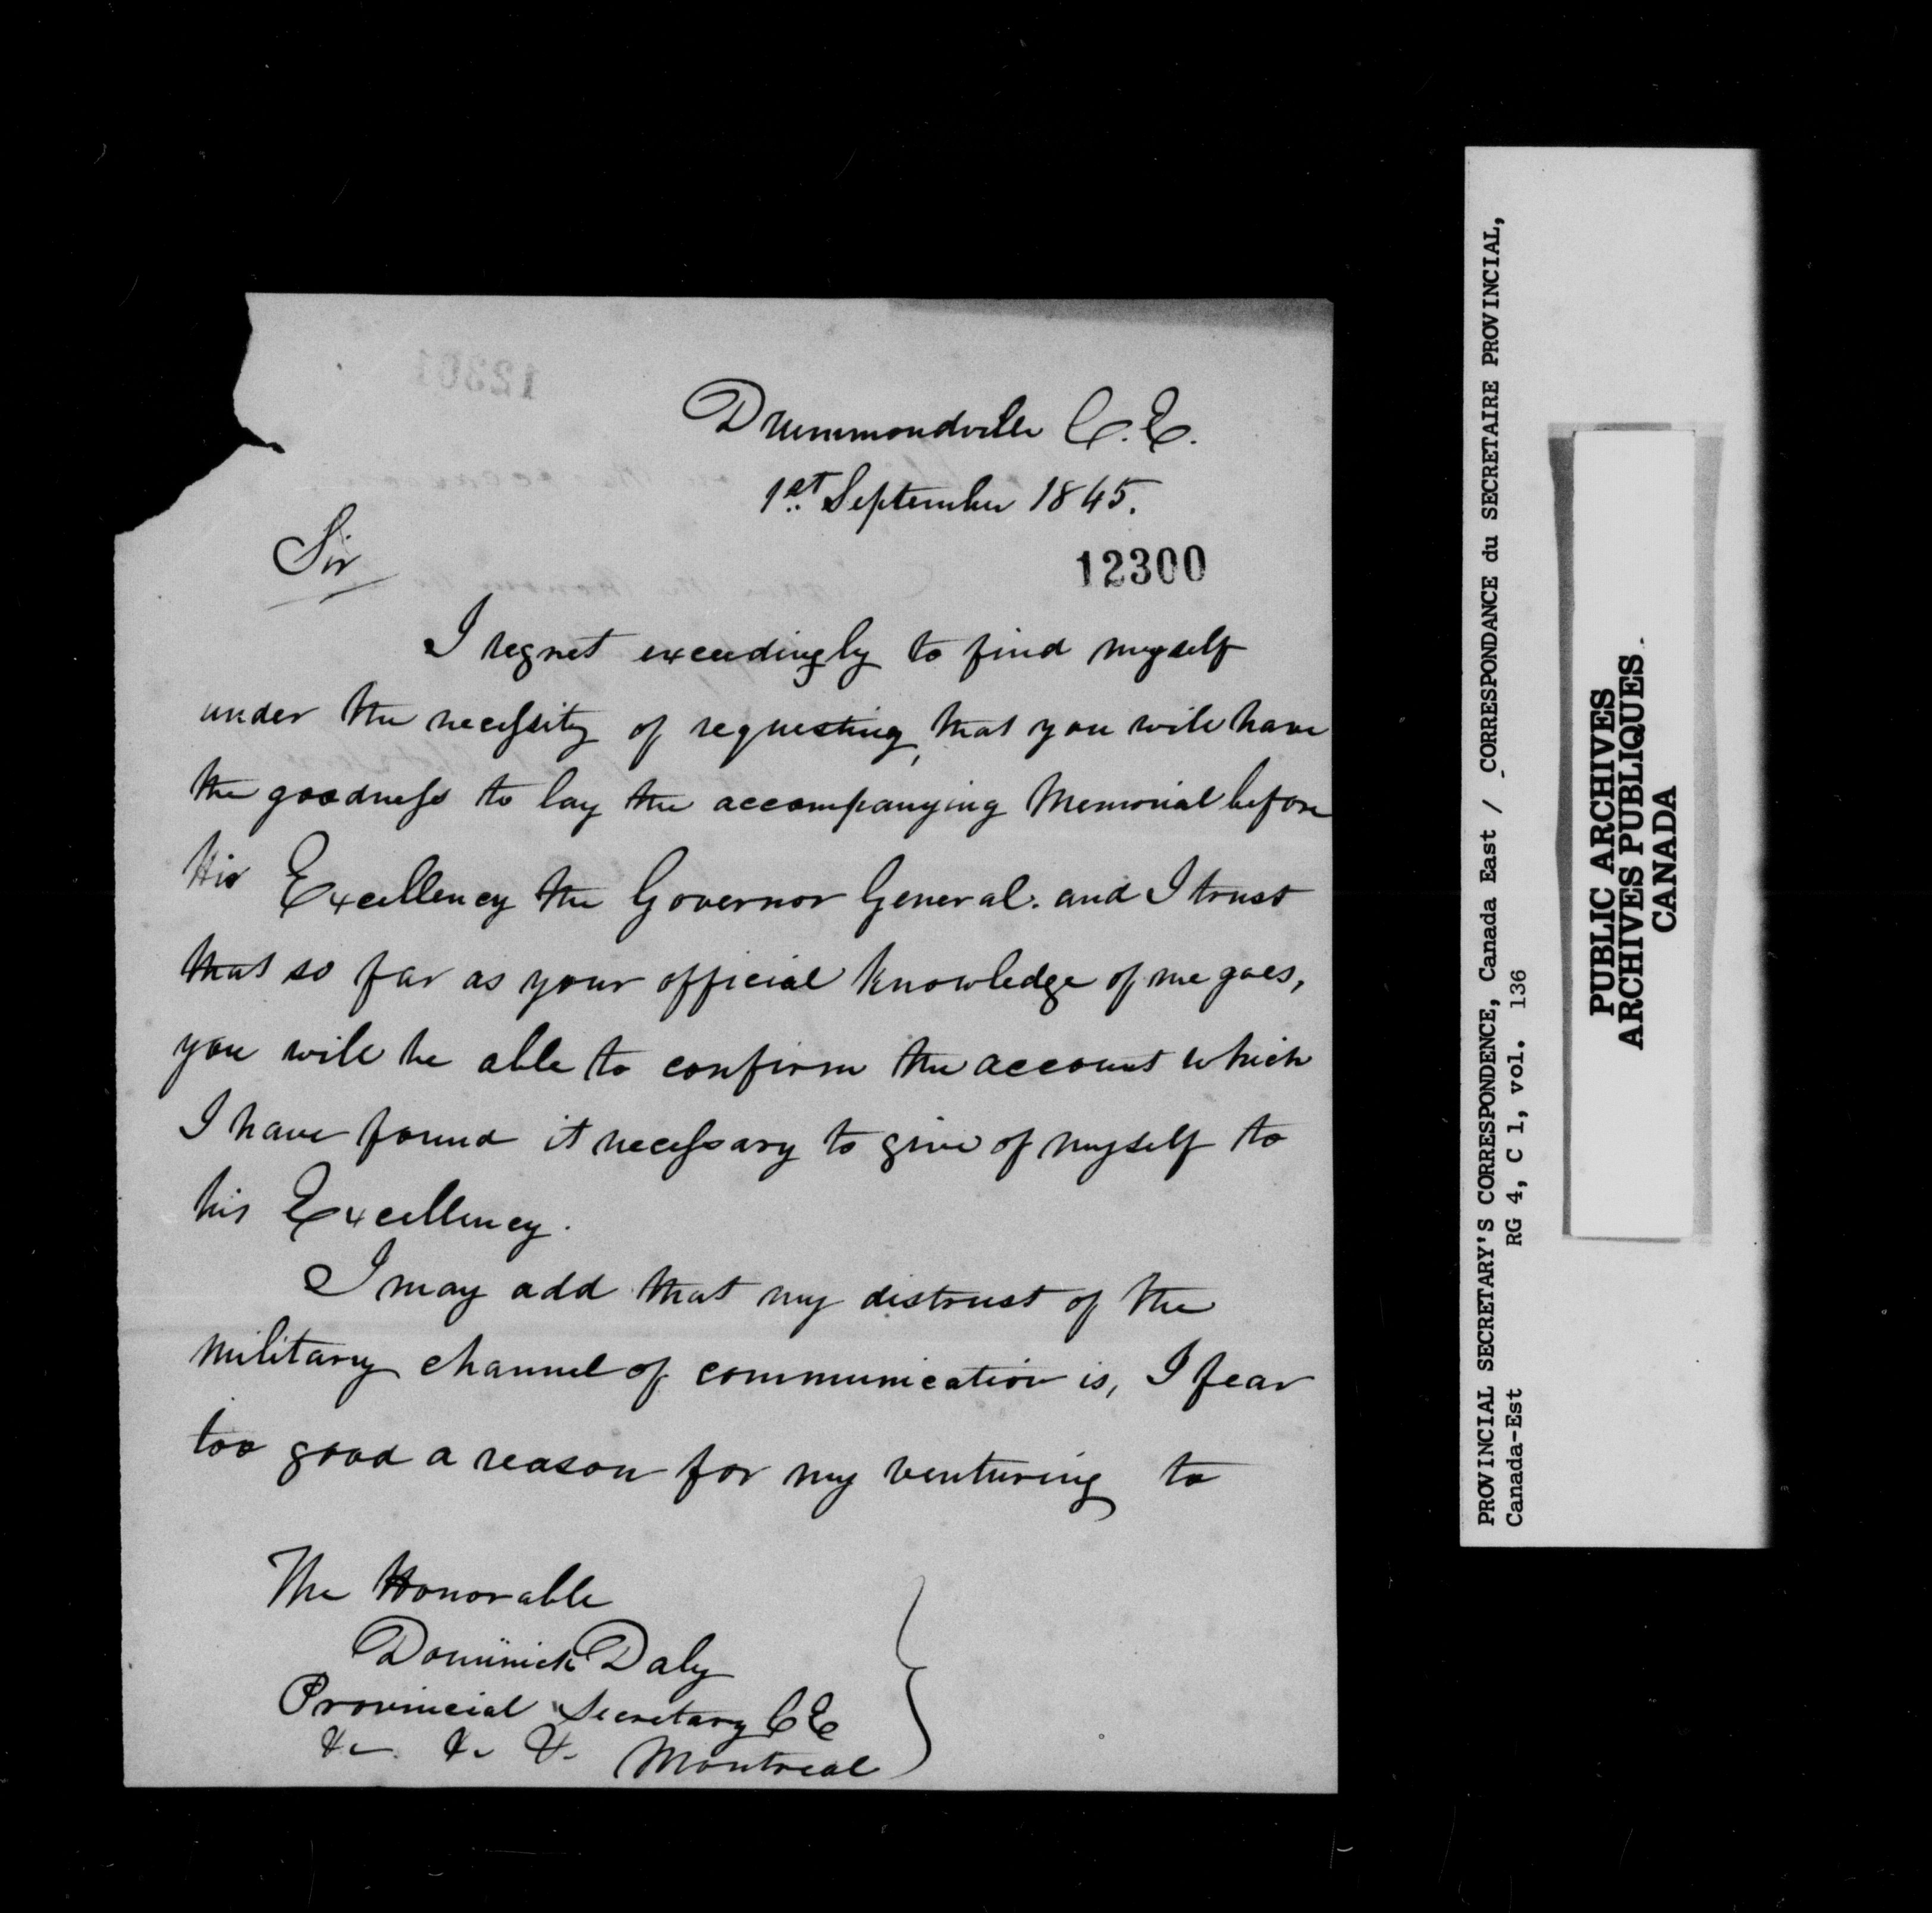 12301
Drummondville C.E.
1st September 1845.
Sir
12300
I regret exceedingly to find myself
under the necessity of requesting, that you will have
the goodness to lay the accompanying Memorial before
His Excellency the Governor General. and I trust
that so far as your official knowledge of me goes,
you will be able to confirm the account which
I have found it necessary to give of myself to
his Excellency.
I may add that my distrust of the
military channel of communication is, I fear
too good a reason for my venturing to
The Honorable
Dominick Daly
Provincial Secretary CE
&c. &c &c Montreal
PROVINCIAL SECRETARY'S CORRESPONDENCE, Canada East / CORRESPONDANCE du SECRETAIRE PROVINCIAL,
Canada-Est RG 4, C 1, vol. 136
PUBLIC ARCHIVES
ARCHIVES PUBLIQUES
CANADA